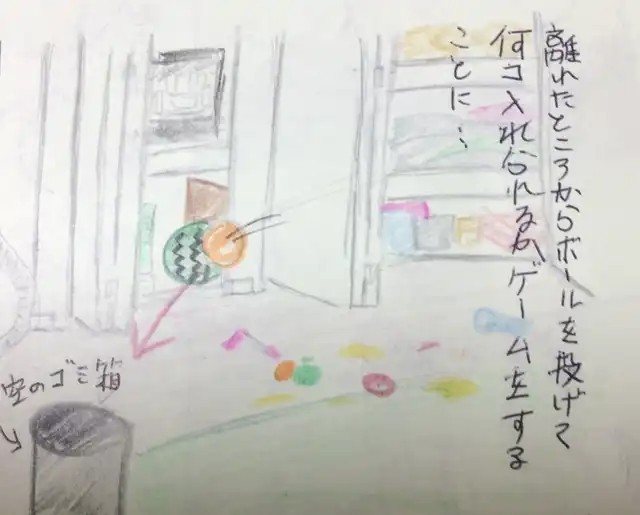 離れたところからボールを投げて
何コ入れられるかゲームをする
ことに…
空のゴミ箱